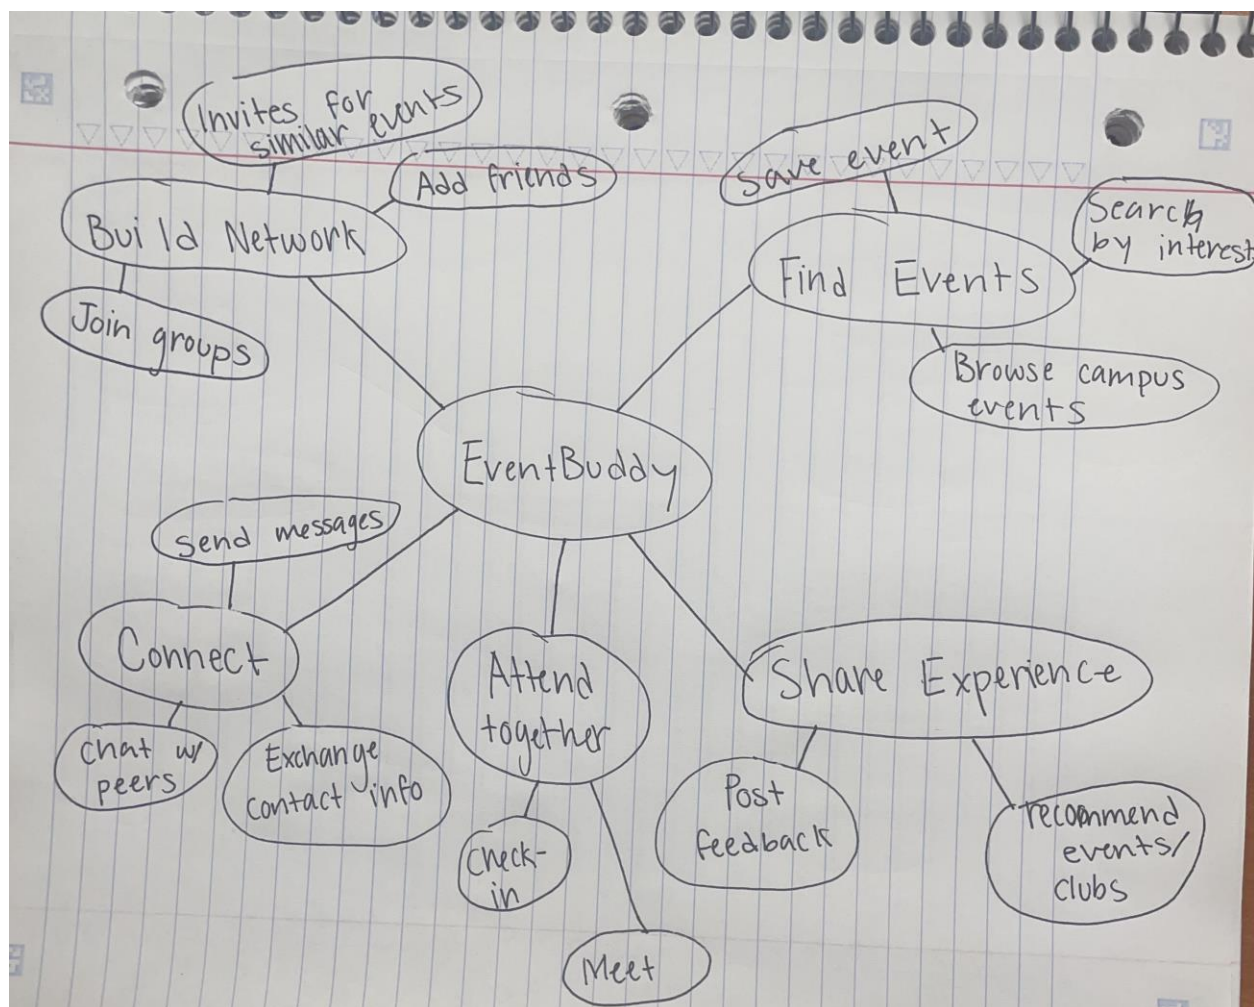 Invites for
similar events
Add friends
Build Network
Join groups
save event
Search
by interest
Find Events
Browse campus
events
EventBuddy
Send messages
Connect
Chat w/
peers
Exchange
contact info
Attend
together
Check-
in
Meet
Share Experience
Post
feedback
recommend
events/
clubs